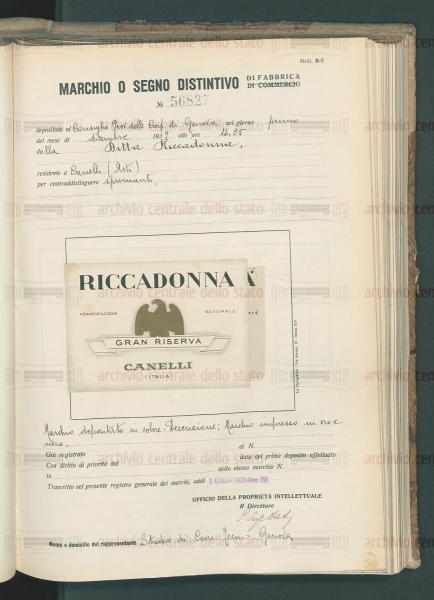 MOD. R-7
MARCHIO O SEGNO DISTINTIVO DI FABBRICA
DI COMMERCIO
№ 56827
depositato al Consiglio Prov. delle Corp. di Genova nel giorno primo
del mese di dicembre 193 alle ore 16.35
dalla Ditta Riccadonna,
residente a Canelli (Asti)
per contraddistinguere spumanti,
archivio centrale dello stato
RICCADONNA A
FERMENTAZIONE NATURALE
GRAN RISERVA
CANELLI
(ITALIA)
Marchio depositato in colore. Descrizione: Marchio impresso in oro e
nero.
Già registrato al N.
Con diritto di priorità dal data del primo deposito effettuato
in dello stesso marchio N.
Trascritto nel presente registro generale dei marchi, addì 10 MAR. 1938 Anno XVI
UFFICIO DELLA PROPRIETÀ INTELLETTUALE
Il Direttore
Nome e domicilio del rappresentante Studio di Genova